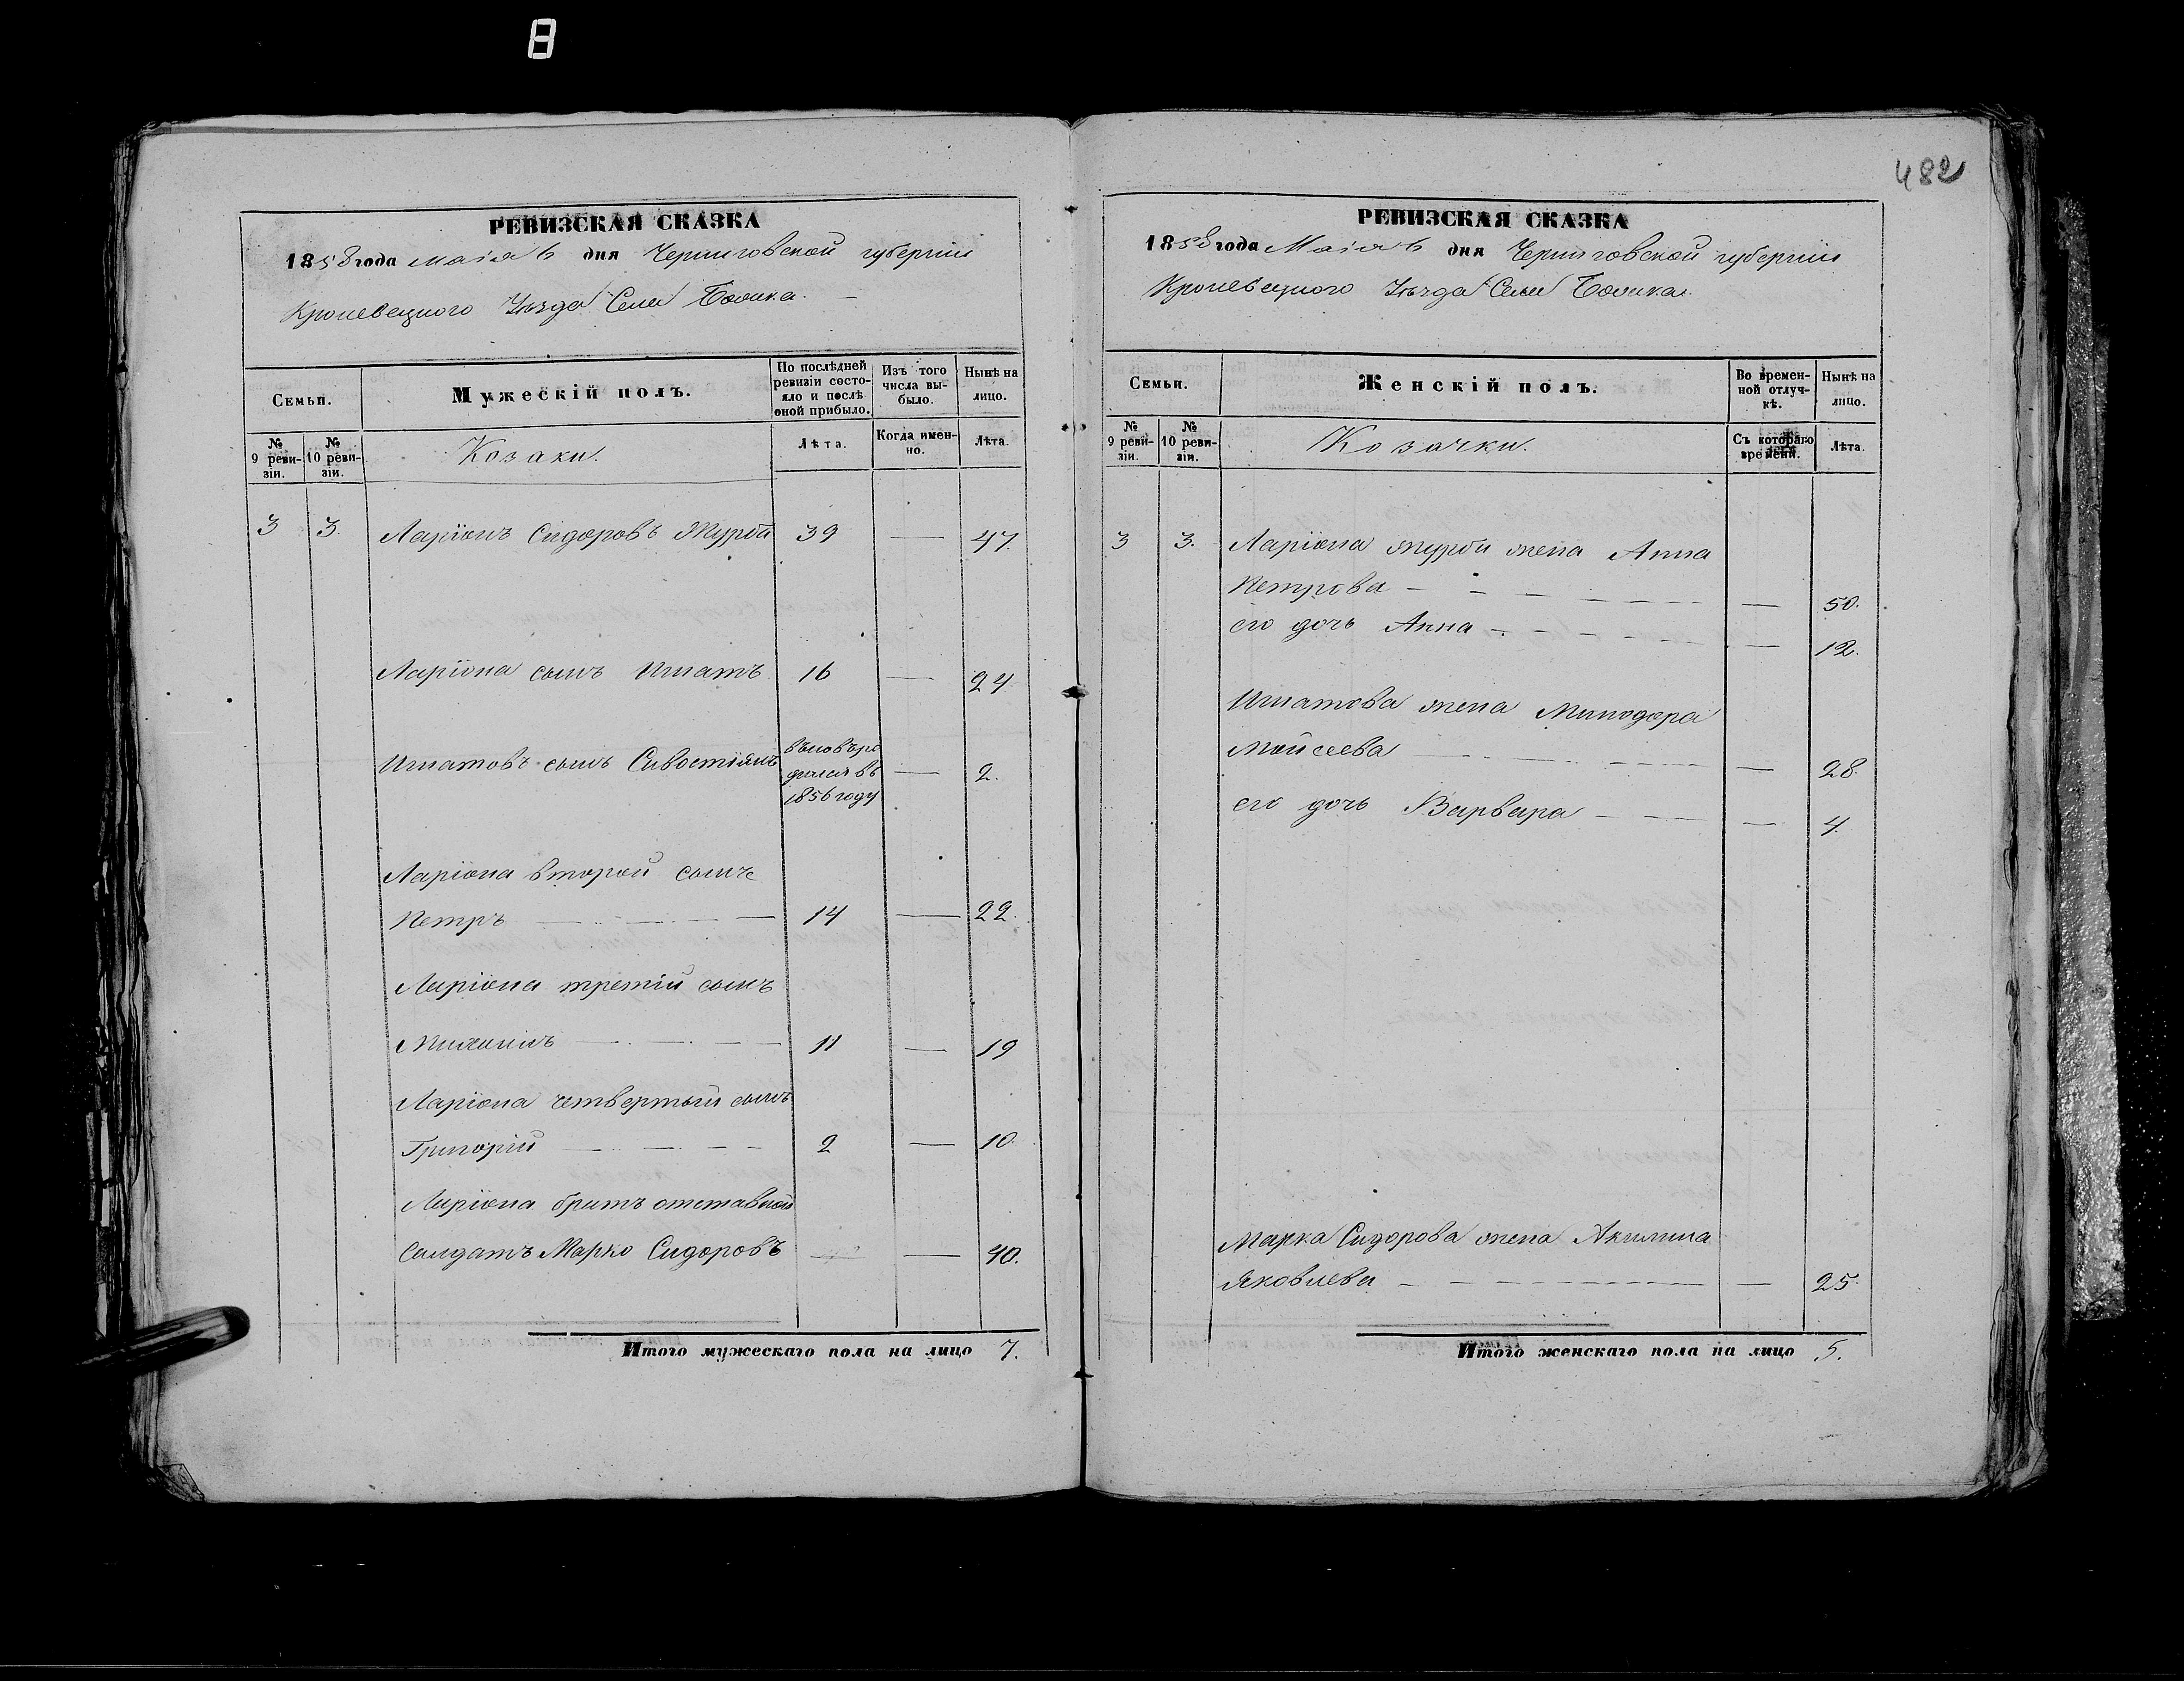 8
482
РЕВИЗСКАЯ СКАЗКА
1858 года Маія 6 дня Черниговской губерніи
Кролевецкого Уѣзда Села
Семьи.
Мужескій полъ.
По послѣдней ревизіи состояло и послѣ оной прибыло.
Изъ того числа выбыло.
Нынѣ на лицо.
№ 9 ревизіи.
№ 10 ревизіи.
Козаки.
Лѣта.
Когда именно.
Лѣта.
3 3. Ларіонъ Сидоровъ Журба 39 — 47.
Ларіона сынъ Игнатъ 16 — 24.
Игнатовъ сынъ Сивостіянъ вновь родился въ 1856 году — 2.
Ларіона второй сынъ
Петръ — 14 — 22.
Ларіона третій сынъ
Михаилъ — 11 — 19
Ларіона четвертый сынъ
Григорій — 2 — 10.
Ларіона братъ отставной
Солдатъ Марко Сидоровъ — — 40.
Итого мужескаго пола на лицо 7.
РЕВИЗСКАЯ СКАЗКА
1858 года Маія 6 дня Черниговской губерніи
Кролевецкого Уѣзда Села
Семьи.
Женскій полъ.
Во временной отлучкѣ.
Нынѣ на лицо.
№ 9 ревизіи.
№ 10 ревизіи.
Козачки.
Съ котораго времени.
Лѣта.
3 3. Ларіона Журбы жена Анна
Петрова — — 50.
его дочь Анна — — 12.
Игнатова жена Минодора
Мойсеева — — 28.
его дочь Варвара — — 4.
Марка Сидорова жена Акилина
Яковлева — — 25.
Итого женскаго пола на лицо 5.